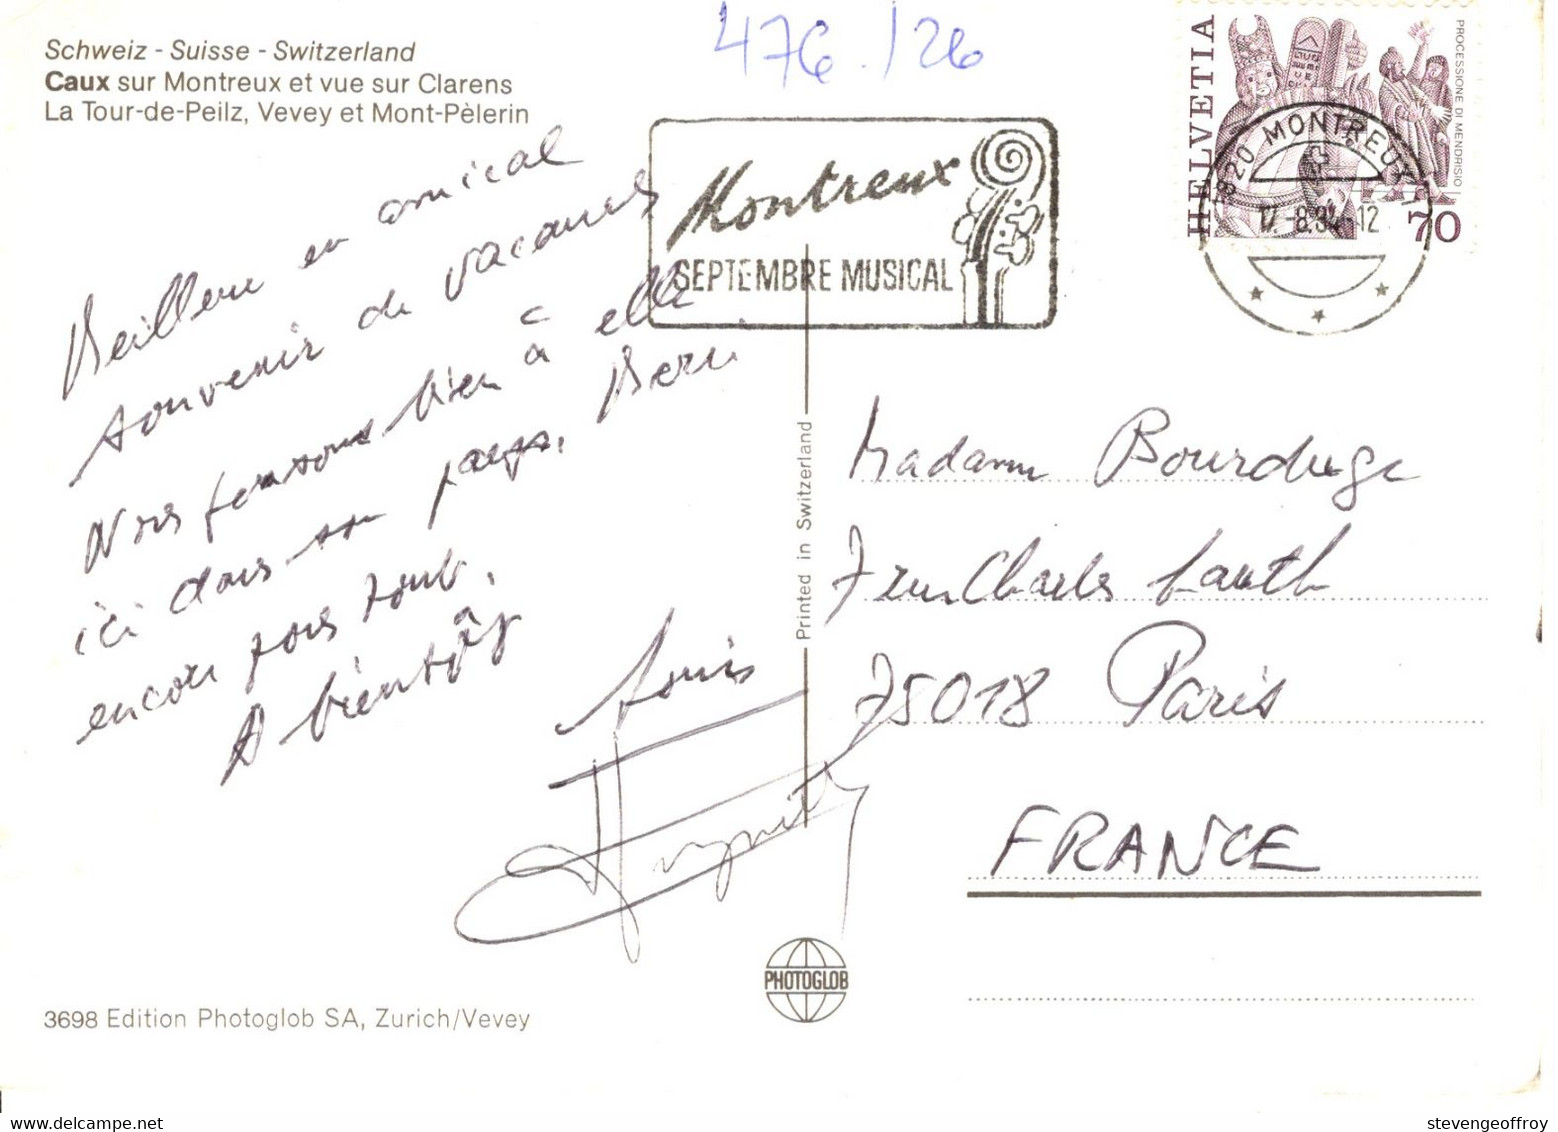 476./26
Schweiz - Suisse - Switzerland
Caux sur Montreux et vue sur Clarens
La Tour-de-Peilz, Vevey et Mont-Pèlerin
Montreux
SEPTEMBRE MUSICAL
HELVETIA
PROCESSIONE DI MENDRISIO
70
1820 MONTREUX 1
17.-8.94-12
en amical
souvenir de vacances
Nous pensons bien à elle
ici dans son pays.
encore pour tout.
A bientôt
Louis
Printed in Switzerland
Madame Bourduge
Jean Charles Lauth
75018 Paris
FRANCE
PHOTOGLOB
3698 Edition Photoglob SA, Zurich/Vevey
stevengeoffroy